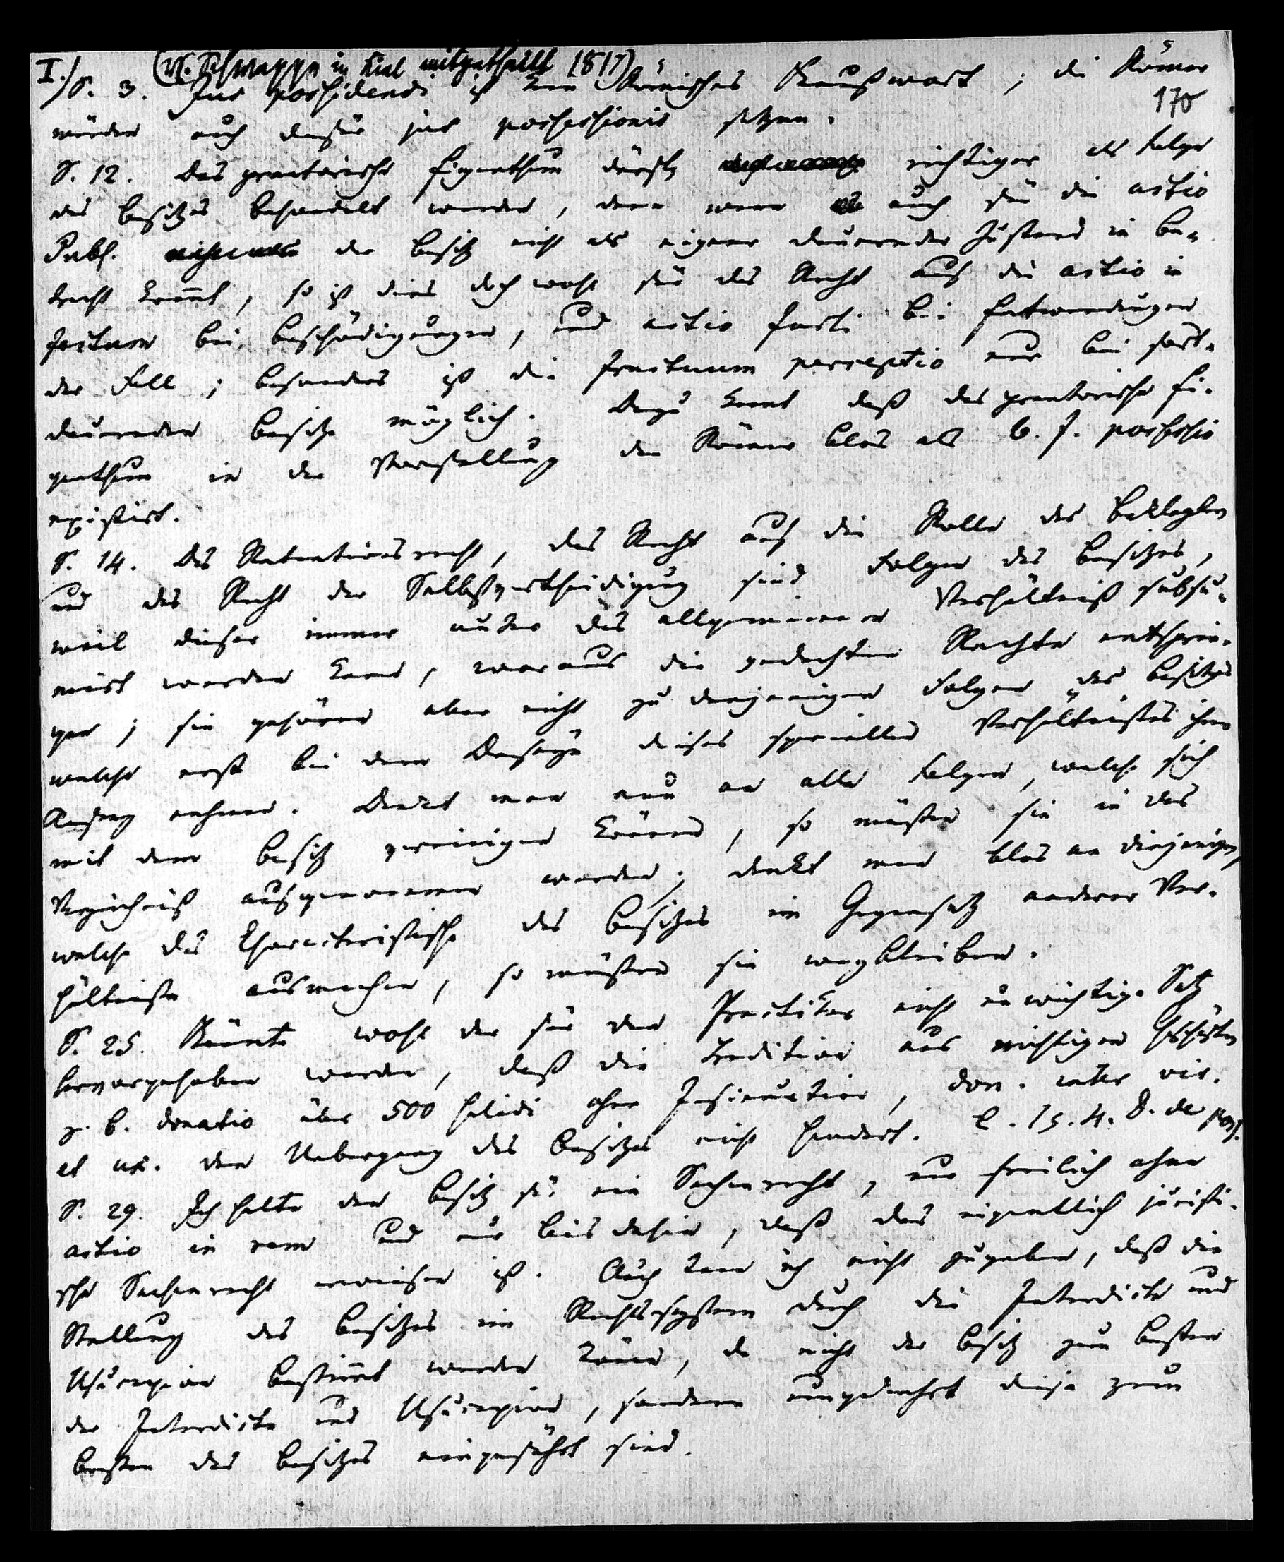 I.) (V. Schweppe in Kiel mitgetheilt 1817)
S. 3. Jus possidendi ist kein Römisches Kunstwort; die Römer
170
würden auch dafür jus possessionis setzen.
S. 12. Das praetorische Eigenthum dürfte richtiger als Folge
des Besitzes behandelt werden, denn wenn auch für die actio
Publ. der Besitz nicht als eigener dauernder Zustand in Be-
tracht kommt, so ist dies doch wohl für das Recht auf die actio in
factum bei Beschädigungen, und actio furti bei Entwendungen
der Fall; besonders ist die fructuum perceptio nur bei fort-
dauerndem Besitze möglich. Dazu kommt daß das praetorische Ei-
genthum in der Vorstellung der Römer blos als b. f. possessio
existirt.
S. 14. Das Retentionsrecht, das Recht auf die Rolle des Beklagten
und das Recht der Selbstvertheidigung sind Folgen des Besitzes,
weil dieser immer unter das allgemeinere Verhältniß subsu-
mirt werden kann, woraus die gedachten Rechte entsprin-
gen; sie gehören aber nicht zu denjenigen Folgen des Besitzes
welche erst bei dem Daseyn dieses speciellen Verhältnißes ihren
Anfang nehmen. Denkt man nun an alle Folgen, welche sich
mit dem Besitz vereinigen können, so müßten sie in das
Verzeichniß aufgenommen werden; denkt man blos an diejenigen,
welche das Characteristische des Besitzes im Gegensatz anderer Ver-
hältniße ausmachen, so müßten sie wegbleiben.
S. 25. Könnte wohl der für den Practiker nicht unwichtige Satz
hervorgehoben werden, daß die Tradition aus nichtigen Geschäften
z. B. donatio über 500 solidi ohne Insinuation, don. inter vir.
et ux. den Uebergang des Besitzes nicht hindert. l. 1 §. 4. D. de poss.
S. 29. Ich halte den Besitz für ein Sachenrecht, nur freilich ohne
actio in rem und nur bis dahin, daß das eigentlich juristi-
sche Sachenrecht erwiesen ist. Auch kann ich nicht zugeben, daß die
Stellung des Besitzes im Rechtssystem durch die Interdicte und
Usucapion bestimmt werden könne, da nicht der Besitz zum Besten
der Interdicte und Usucapion, sondern umgekehrt diese zum
Besten des Besitzes eingeführt sind.